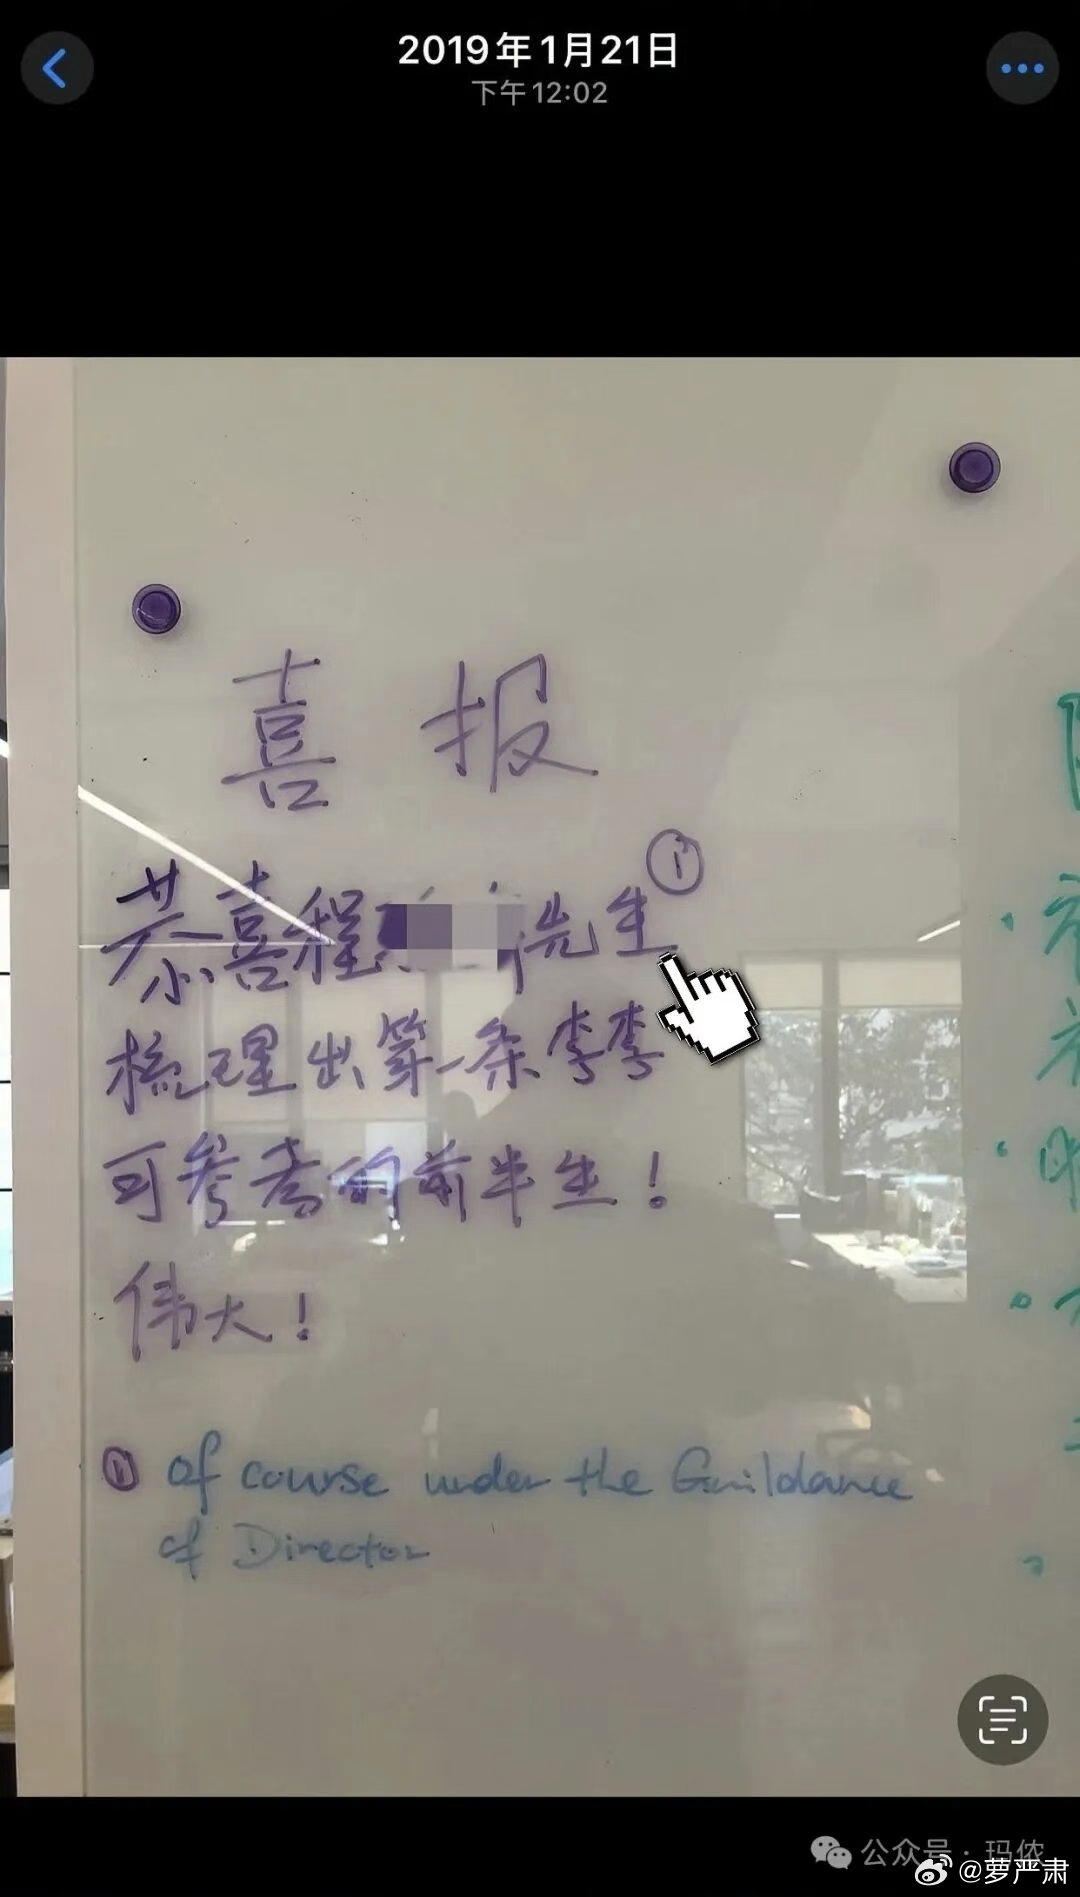 2019年1月21日
下午12:02
喜报
恭喜程 先生①
梳理出第一条李李
可参考的前半生！
伟大！
① Of course under the Guildance
of Director
公众号·玛侬
@萝严肃